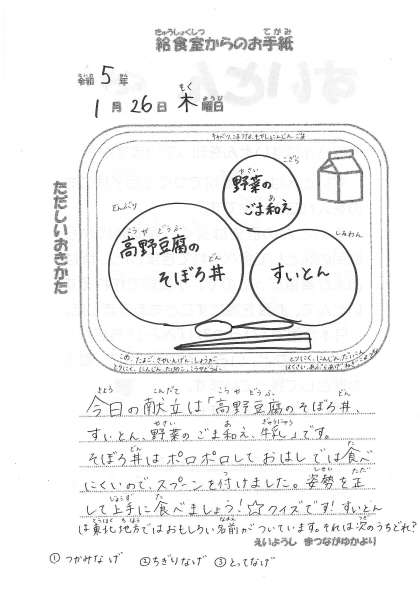 きゅうしょくしつ てがみ
給食室からのお手紙
令和5年
もく
1月26日 木曜日
ただしいおきかた
こざら
やさい
野菜の
ごま和え
どんぶり
こうやどうふ
高野豆腐の
そぼろ丼
しるわん
すいとん
きょう こんだて こうやどうふ どん
今日の献立は「高野豆腐のそぼろ丼、
やさい あ ぎゅうにゅう
すいとん、野菜のごま和え、牛乳」です。
どん た
そぼろ丼はポロポロしておはしでは食べ
つ しせい ただ
にくいので、スプーンを付けました。姿勢を正
じょうず た
して上手に食べましょう!☆クイズです!すいとん
とうほくちほう なまえ つぎ
は東北地方ではおもしろい名前がついています。それは次のうちどれ?
えいようし まつながゆかより
①つかみなげ ②ちぎりなげ ③とってなげ